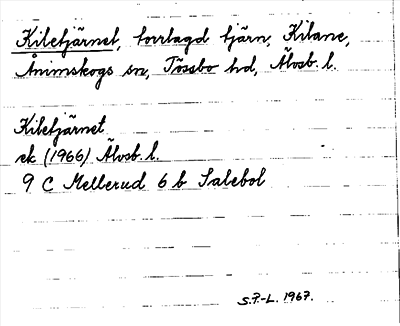 Kiletjärnet, torrlagd tjärn, Kilane,
Ånimskogs sn, Tössbo hd, Älvsb. l.
Kiletjärnet
ek (1966) Älvsb. l.
9 C Mellerud 6 b Salebol
S.F.-L. 1967.